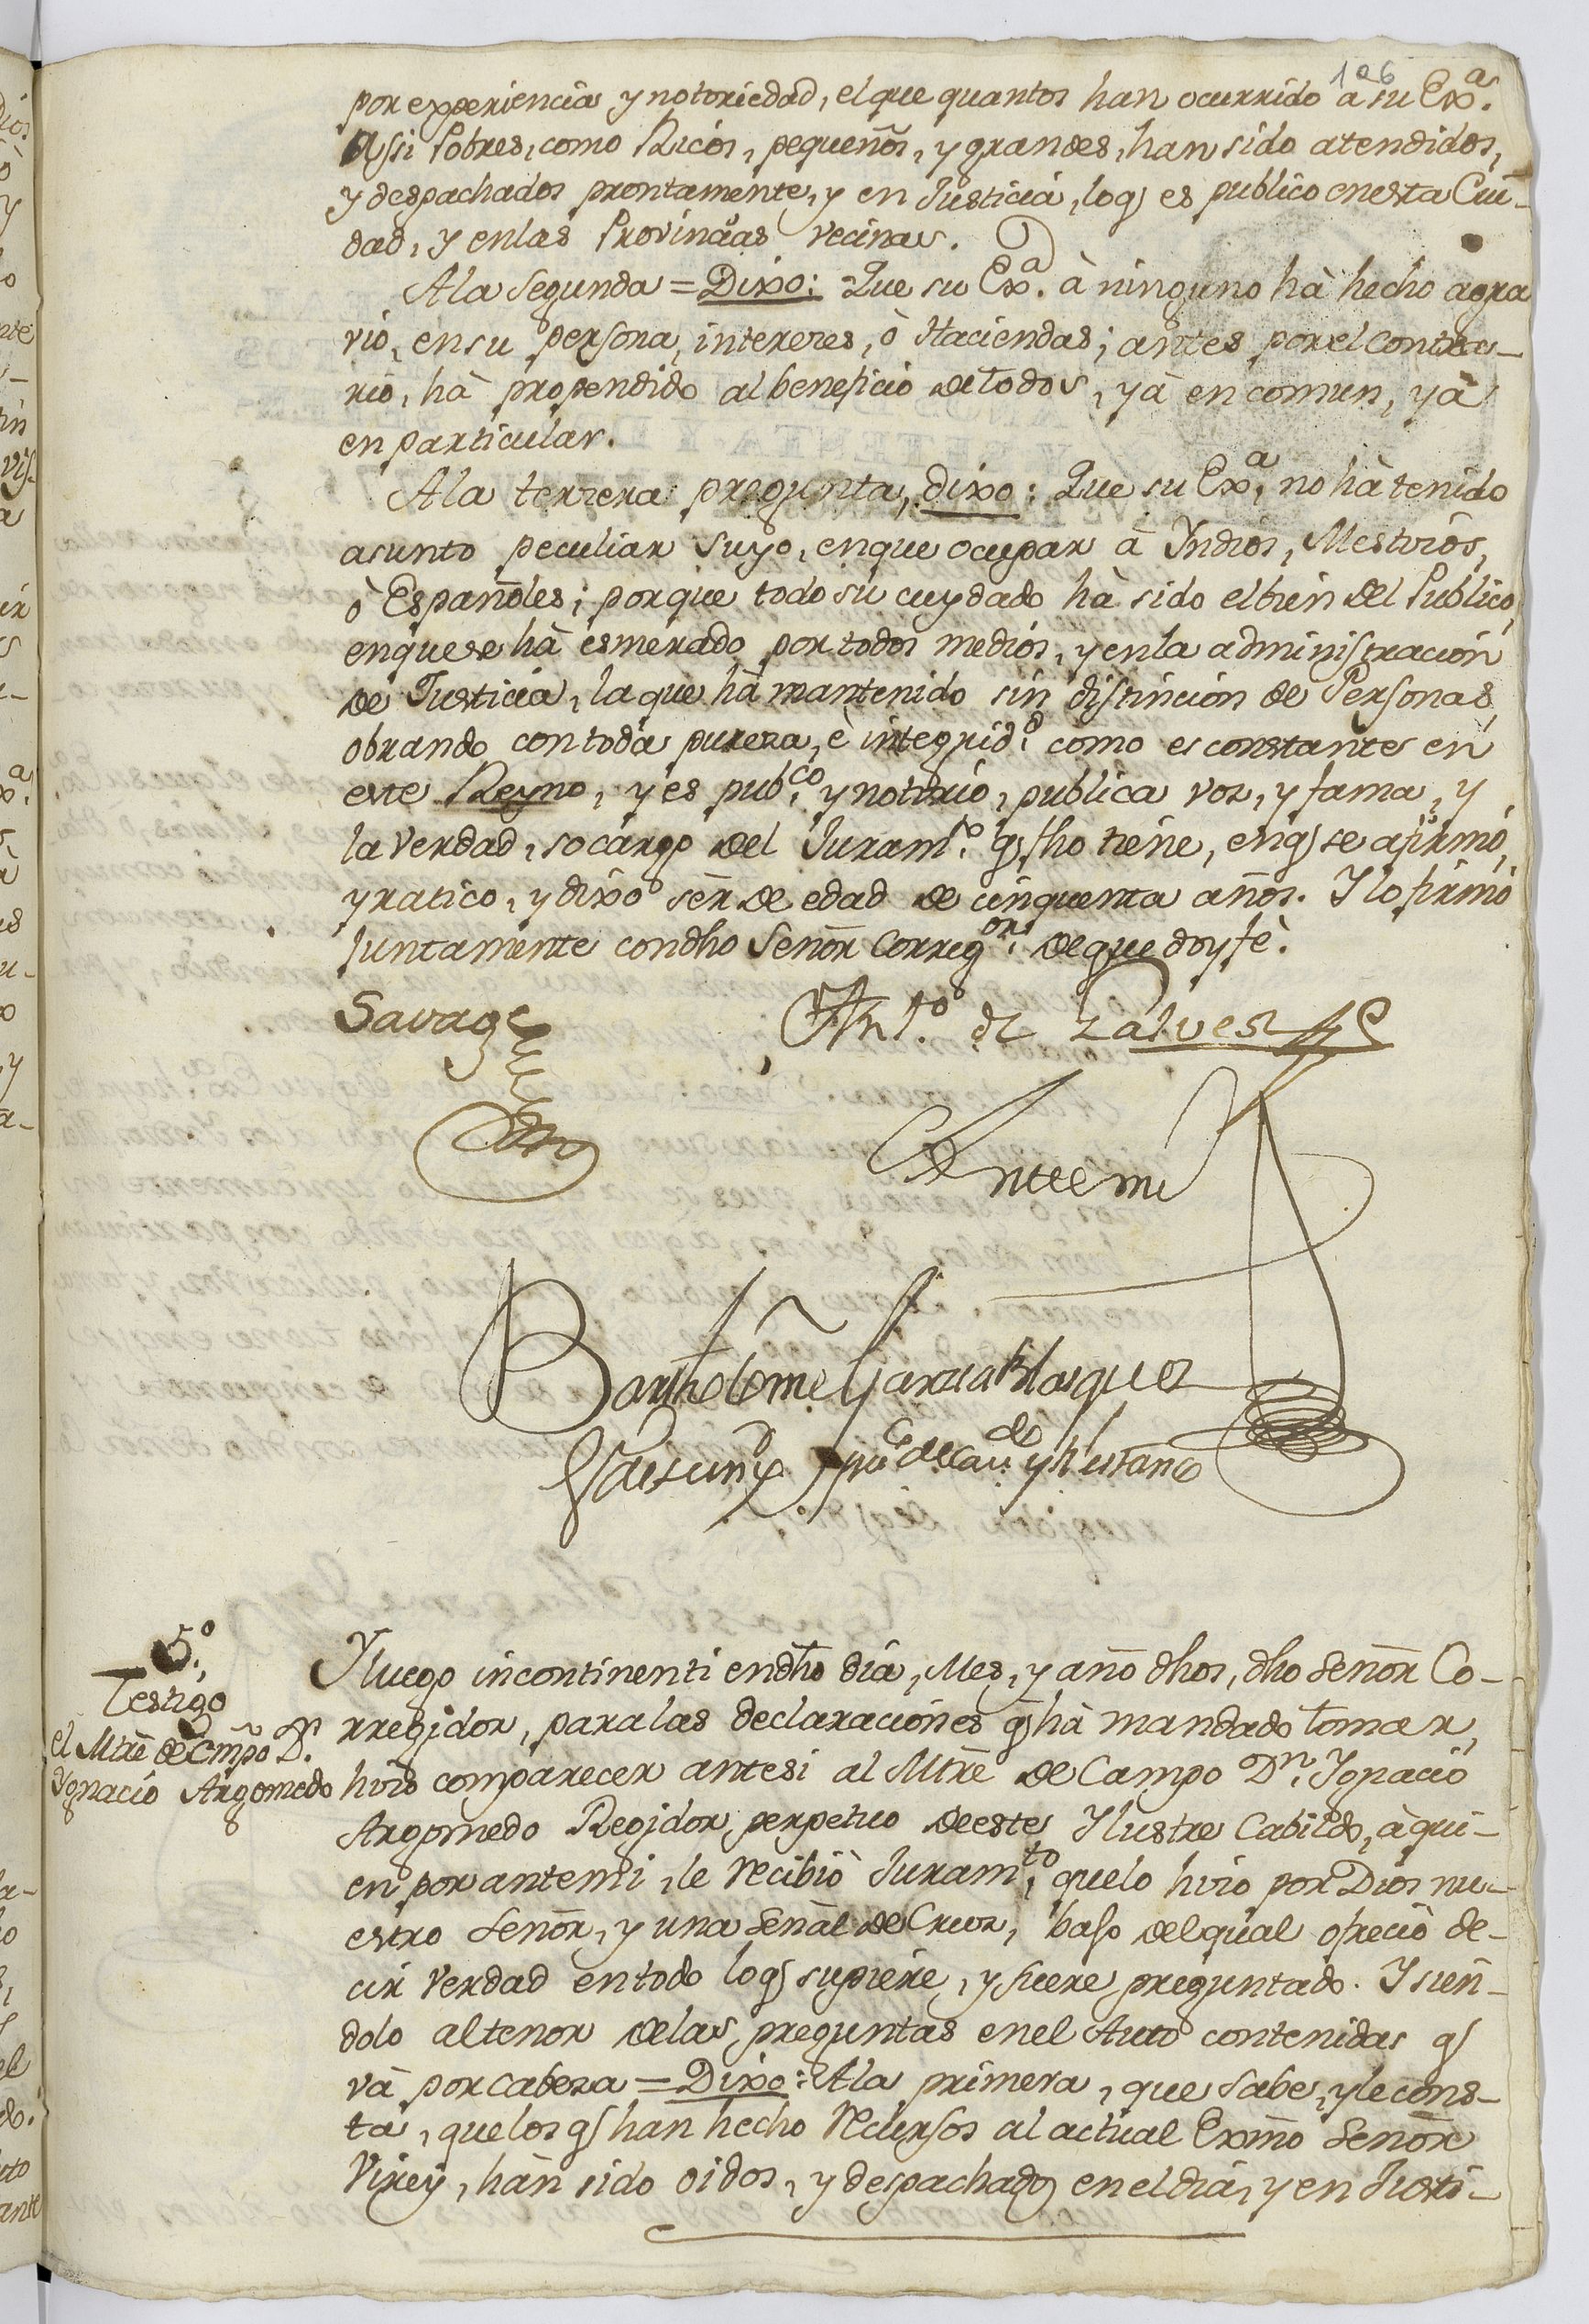 106
por experiencia y notoriedad, el que quantos han ocurrido a su Exª.
Assi Pobres, como Ricos, pequeños, y grandes, han sido atendidos,
y despachados prontamente, y en Justicia, lo q̃ es publico en esta Ciu-
dad, y en las Provincias vecinas.
A la Segunda = Dixo: Que su Exª. à ninguno hà hecho agra
vio, en su persona, intereses, ò Haciendas; antes por el contra-
rio, hà propendido al beneficio de todos, yà en comun, yà
en particular.
A la terzera pregunta, dixo: Que su Exª. no hà tenido
asunto peculiar suyo, en que ocupar à Yndios, Mestizos,
ò Españoles; porque todo su cuydado hà sido el bien del Publico,
en que se hà esmerado por todos medios, y en la administracion
de Justicia, la que hà mantenido sin distincion de Personas,
obrando con toda pureza, è integridᵈ. como es constante en
este Reyno, y es pubᶜᵒ. y notorio, publica voz, y fama, y
la verdad, so cargo del Juramᵗᵒ. q̃ fho tiene, en q̃ se afirmò,
y ratico, y dixo ser de edad de cinquenta años. Y lo firmò
Juntamente con dho Señor Corregᵒʳ. de que doy fè.
Savage
Antᵒ. de Zalvez
Ante mi
Bartholome Garzia Blasquez
5º.
Testigo
el Mtrè de Cmpo Dⁿ.
Ygnacio Argomedo
Y luego incontinenti en dho dia, Mes, y año dhos, dho Señor Co-
rregidor, para las declaraciones q̃ hà mandado tomar,
hizo comparecer ante si al Mtrè de Campo Dⁿ. Ignacio
Argomedo Regidor perpetuo de este Ylustre Cabildo, à qui-
en por ante mi, le recibiò Juramᵗᵒ. que lo hizo por Dios nu-
estro Señor, y una Señal de Cruz, bajo del qual ofreciò de-
cir verdad en todo lo q̃ supiere, y fuere preguntado. Y sien-
dolo al tenor de las preguntas en el Auto contenidas q̃
và por cabeza = Dixo: A la primera, que sabe, y le cons-
ta, que los q̃ han hecho recursos al actual Exmo Señor
Virey, hàn sido oidos, y despachados en el dia, y en Justi-